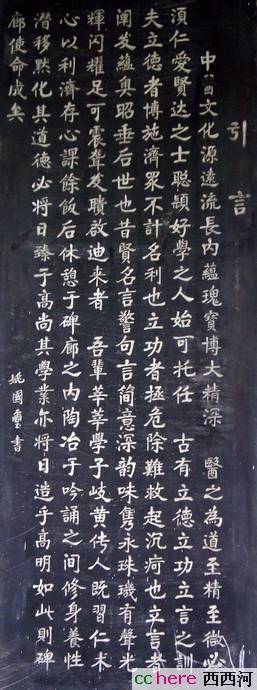 引言
中國文化源遠流長內蘊瑰寶博大精深 醫之為道至精至微必
須仁愛賢达之士聰穎好學之人始可托任 古有立德立功立言之訓
夫立德者博施濟眾不計名利也立功者拯危除難救起沉疴也立言者
阐发蘊奥昭垂后世也昔賢名言警句言简意深韵味雋永珠璣有聲光
輝闪耀足可震聋发聵啟迪來者 吾輩莘莘學子岐黄传人既習仁术
心以利濟存心課餘飯后休憩于碑廊之内陶冶于吟誦之间修身養性
潜移默化其道德必將日臻于高尚其學業亦將日造乎高明如此則碑
廊使命成矣
姚國璽 書
cchere 西西河